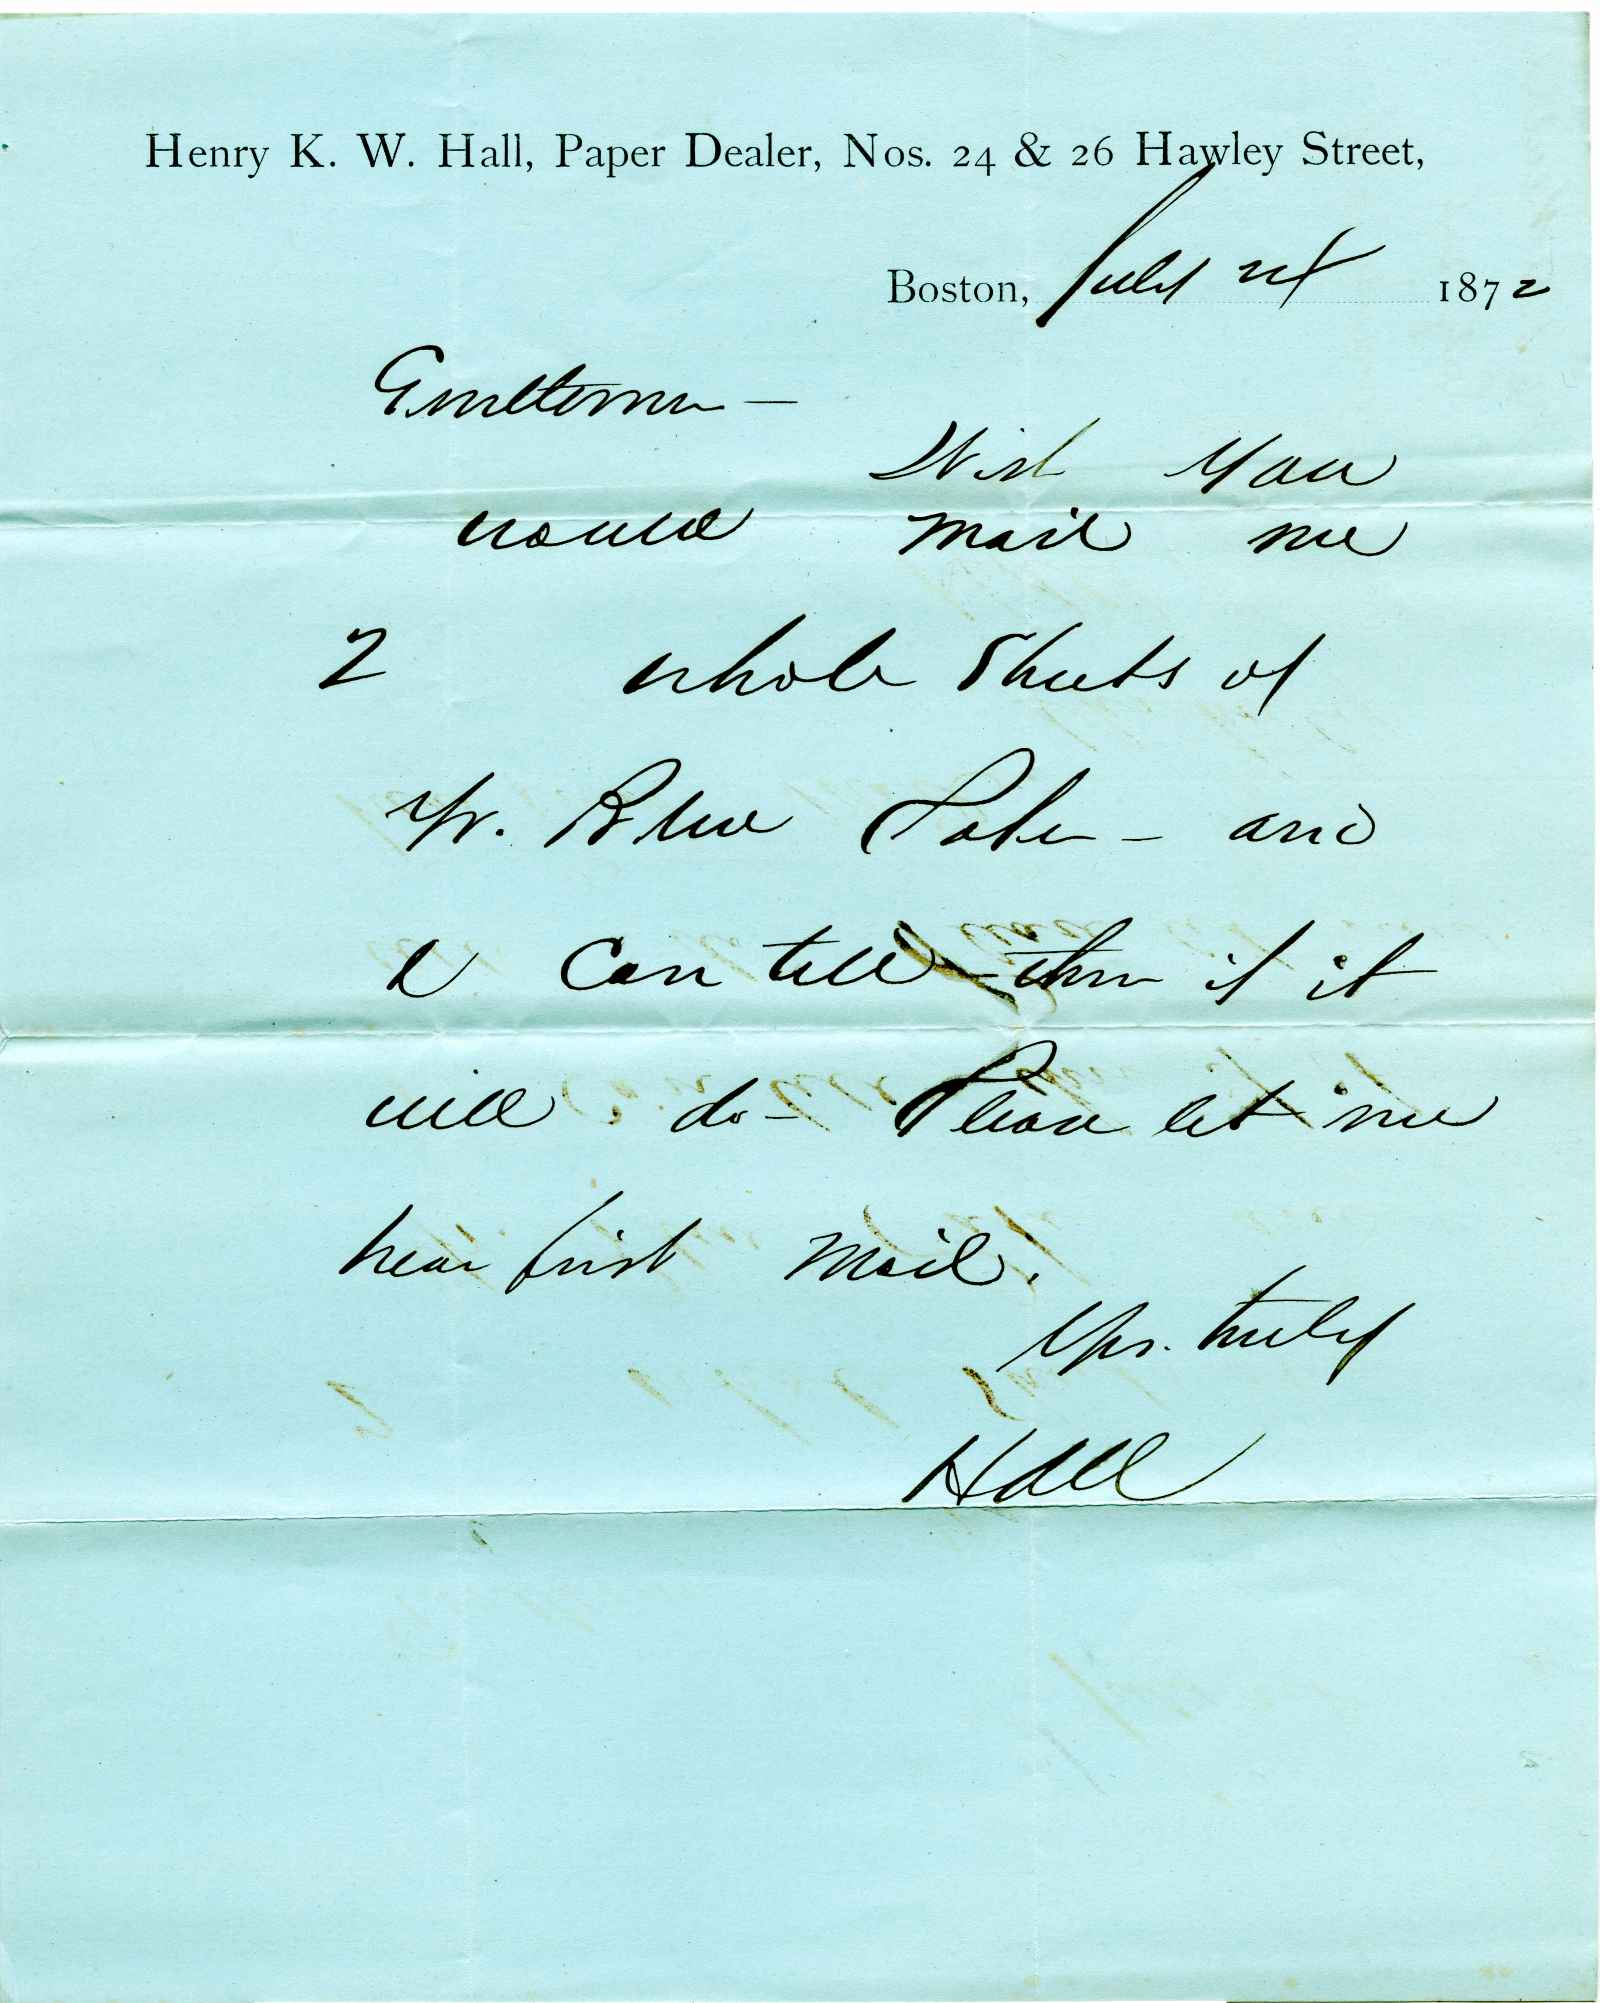 Henry K. W. Hall, Paper Dealer, Nos. 24 & 26 Hawley Street,
Boston, July 24 1872
Gentlemen —
Wish you
would mail me
2 whole Sheets of
Yr. Blue — and
I Can tell then if it
will do — Please let me
hear first Mail.
Yrs. truly
Hall